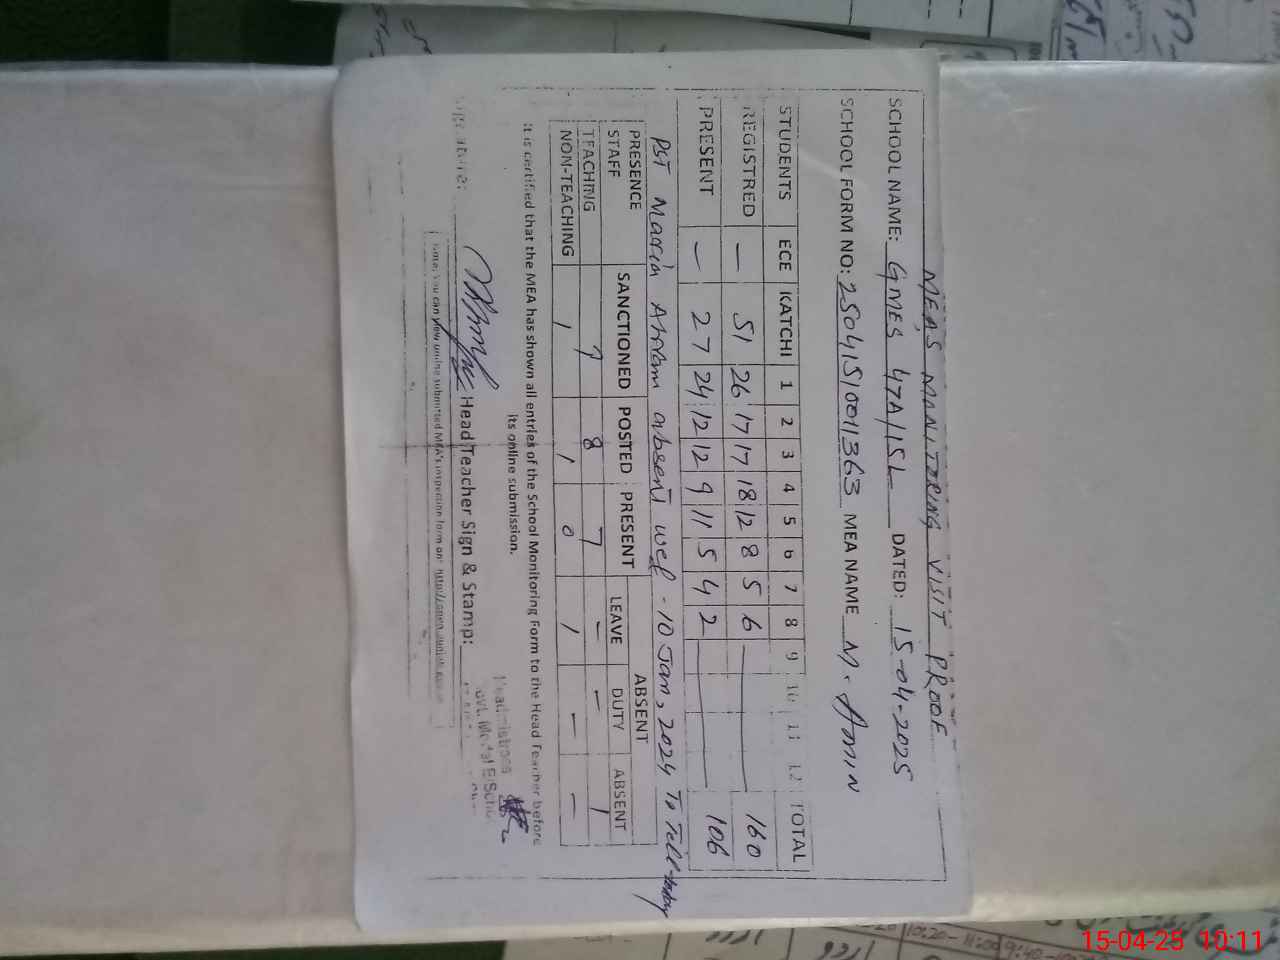 MEA,S MANITORING VISIT PROOF
SCHOOL NAME: GMES 47A/15L DATED: 15-04-2025
SCHOOL FORM NO: 25041510011363 MEA NAME M. AMIN
STUDENTS ECE KATCHI 1 2 3 4 5 6 7 8 9 10 11 12 TOTAL
REGISTRED — 51 26 17 17 18 12 8 5 6 160
PRESENT — 27 24 12 12 9 11 5 4 2 106
PST absent wef - 10 Jan, 2024 To Till-today
PRESENCE SANCTIONED POSTED PRESENT ABSENT
STAFF LEAVE DUTY ABSENT
TEACHING 9 8 7 — — 1
NOM-TEACHING 1 1 0 1 — —
It is certified that the MEA has shown all entries of the School Monitoring Form to the Head Teacher before
its online submission.
Head Teacher Sign & Stamp:
Headmistress
Govt. Model E/School
Note: You can view online submitted MEA's inspection form on:
10:20-11:00 9:40-
15-04-25 10:11